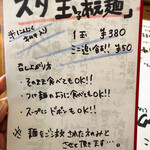 スタ玉まぜ麺
1玉 ¥380
ミニ追い飯!! ¥50
召し上がり方
・そのまま食べてもOK!!
・つけ麺のように食べてもOK!!
・スープにドボンもOK!!
※ 麺をご注文された方のみと
させて頂きます…